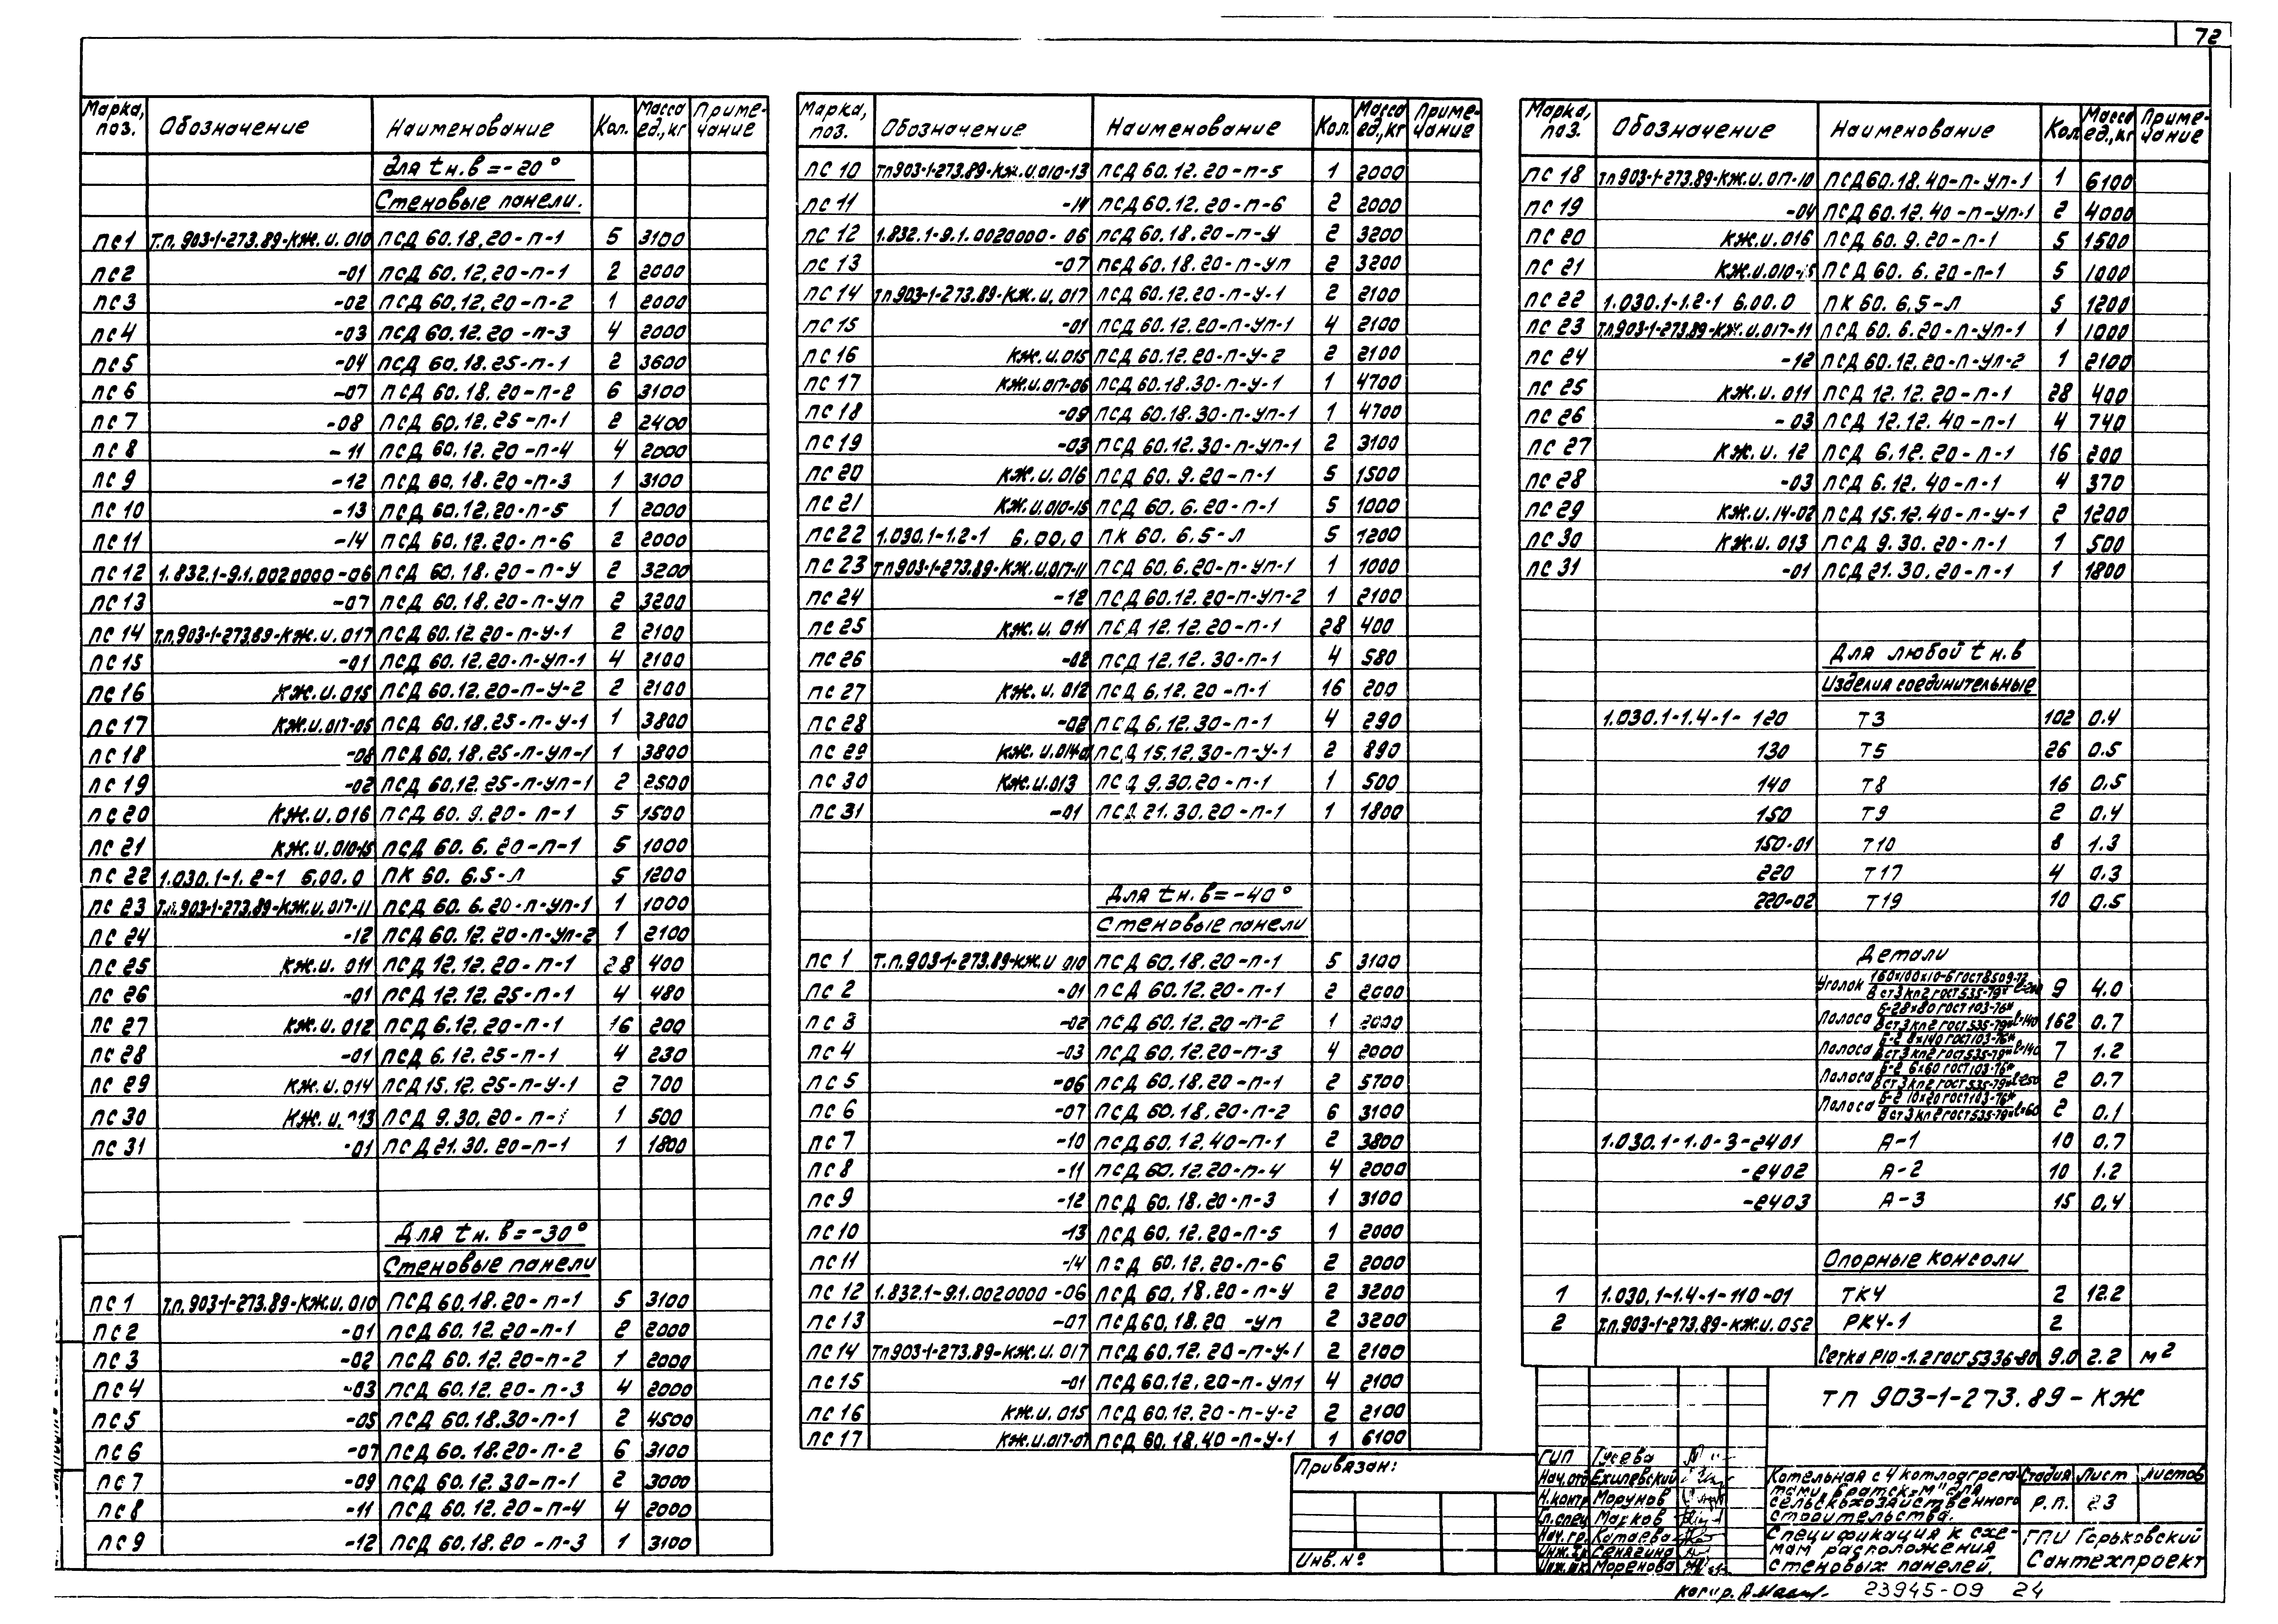 72
Марка, поз. Обозначение Наименование Кол. Масса ед.,кг Приме-чание
Для tн.в =-20°
Стеновые панели.
ПС1 Т.п. 903-1-273.89-КЖ.И.010 ПСД 60.18.20-П-1 5 3100
ПС2 -01 ПСД 60.12.20-П-1 2 2000
ПС3 -02 ПСД 60.12.20-П-2 1 2000
ПС4 -03 ПСД 60.12.20-П-3 4 2000
ПС5 -04 ПСД 60.18.25-П-1 2 3600
ПС6 -07 ПСД 60.18.20-П-2 6 3100
ПС7 -08 ПСД 60.12.25-П-1 2 2400
ПС8 -11 ПСД 60.12.20-П-4 4 2000
ПС9 -12 ПСД 60.18.20-П-3 1 3100
ПС10 -13 ПСД 60.12.20-П-5 1 2000
ПС11 -14 ПСД 60.12.20-П-6 2 2000
ПС12 1.832.1-9.1.0020000-06 ПСД 60.18.20-П-У 2 3200
ПС13 -07 ПСД 60.18.20-П-УП 2 3200
ПС14 Т.п.903-1-273.89-КЖ.И.017 ПСД 60.12.20-П-У-1 2 2100
ПС15 -01 ПСД 60.12.20-П-УП-1 4 2100
ПС16 КЖ.И.015 ПСД 60.12.20-П-У-2 2 2100
ПС17 КЖ.И.017-05 ПСД 60.18.25-П-У-1 1 3800
ПС18 -08 ПСД 60.18.25-П-УП-1 1 3800
ПС19 -02 ПСД 60.12.25-П-УП-1 2 2500
ПС20 КЖ.И.016 ПСД 60.9.20-П-1 5 1500
ПС21 КЖ.И.010-15 ПСД 60.6.20-П-1 5 1000
ПС22 1.030.1-1.2-1 6.00.0 ПК 60.6.5-Л 5 1200
ПС23 Т.п.903-1-273.89-КЖ.И.017-11 ПСД 60.6.20-П-УП-1 1 1000
ПС24 -12 ПСД 60.12.20-П-УП-2 1 2100
ПС25 КЖ.И.011 ПСД 12.12.20-П-1 28 400
ПС26 -01 ПСД 12.12.25-П-1 4 480
ПС27 КЖ.И.012 ПСД 6.12.20-П-1 16 200
ПС28 -01 ПСД 6.12.25-П-1 4 230
ПС29 КЖ.И.014 ПСД 15.12.25-П-У-1 2 700
ПС30 КЖ.И.013 ПСД 9.30.20-П-1 1 500
ПС31 -01 ПСД 21.30.20-П-1 1 1800
Для tн.в=-30°
Стеновые панели
ПС1 Т.п.903-1-273.89-КЖ.И.010 ПСД 60.18.20-П-1 5 3100
ПС2 -01 ПСД 60.12.20-П-1 2 2000
ПС3 -02 ПСД 60.12.20-П-2 1 2000
ПС4 -03 ПСД 60.12.20-П-3 4 2000
ПС5 -05 ПСД 60.18.30-П-1 2 4500
ПС6 -07 ПСД 60.18.20-П-2 6 3100
ПС7 -09 ПСД 60.12.30-П-1 2 3000
ПС8 -11 ПСД 60.12.20-П-4 4 2000
ПС9 -12 ПСД 60.18.20-П-3 1 3100
Марка, поз. Обозначение Наименование Кол. Масса ед.,кг Приме-чание
ПС10 ТП903-1-273.89-КЖ.И.010-13 ПСД 60.12.20-П-5 1 2000
ПС11 -14 ПСД 60.12.20-П-6 2 2000
ПС12 1.832.1-9.1.0020000-06 ПСД 60.18.20-П-У 2 3200
ПС13 -07 ПСД 60.18.20-П-УП 2 3200
ПС14 ТП903-1-273.89-КЖ.И.017 ПСД 60.12.20-П-У-1 2 2100
ПС15 -01 ПСД 60.12.20-П-УП-1 4 2100
ПС16 КЖ.И.015 ПСД 60.12.20-П-У-2 2 2100
ПС17 КЖ.И.017-06 ПСД 60.18.30-П-У-1 1 4700
ПС18 -09 ПСД 60.18.30-П-УП-1 1 4700
ПС19 -03 ПСД 60.12.30-П-УП-1 2 3100
ПС20 КЖ.И.016 ПСД 60.9.20-П-1 5 1500
ПС21 КЖ.И.010-15 ПСД 60.6.20-П-1 5 1000
ПС22 1.030.1-1.2-1 6.00.0 ПК 60.6.5-Л 5 1200
ПС23 ТП903-1-273.89-КЖ.И.017-11 ПСД 60.6.20-П-УП-1 1 1000
ПС24 -12 ПСД 60.12.20-П-УП-2 1 2100
ПС25 КЖ.И.011 ПСД 12.12.20-П-1 28 400
ПС26 -02 ПСД 12.12.30-П-1 4 580
ПС27 КЖ.И.012 ПСД 6.12.20-П-1 16 200
ПС28 -02 ПСД 6.12.30-П-1 4 290
ПС29 КЖ.И.014 ПСД 15.12.30-П-У-1 2 890
ПС30 КЖ.И.013 ПСД 9.30.20-П-1 1 500
ПС31 -01 ПСД 21.30.20-П-1 1 1800
Для tн.в=-40°
Стеновые панели
ПС1 Т.п.903-1-273.89-КЖ.И 010 ПСД 60.18.20-П-1 5 3100
ПС2 -01 ПСД 60.12.20-П-1 2 2000
ПС3 -02 ПСД 60.12.20-П-2 1 2000
ПС4 -03 ПСД 60.12.20-П-3 4 2000
ПС5 -06 ПСД 60.18.20-П-1 2 5700
ПС6 -07 ПСД 60.18.20-П-2 6 3100
ПС7 -10 ПСД 60.12.40-П-1 2 3800
ПС8 -11 ПСД 60.12.20-П-4 4 2000
ПС9 -12 ПСД 60.18.20-П-3 1 3100
ПС10 -13 ПСД 60.12.20-П-5 1 2000
ПС11 -14 ПСД 60.12.20-П-6 2 2000
ПС12 1.832.1-9.1.0020000-06 ПСД 60.18.20-П-У 2 3200
ПС13 -07 ПСД 60.18.20 -УП 2 3200
ПС14 ТП903-1-273.89-КЖ.И.017 ПСД 60.12.20-П-У-1 2 2100
ПС15 -01 ПСД 60.12.20-П-УП1 4 2100
ПС16 КЖ.И.015 ПСД 60.12.20-П-У-2 2 2100
ПС17 КЖ.И.017-07 ПСД 60.18.40-П-У-1 1 6100
Марка, поз. Обозначение Наименование Кол. Масса ед.,кг Приме-чание
ПС18 ТП903-1-273.89-КЖ.И.017-10 ПСД 60.18.40-П-УП-1 1 6100
ПС19 -04 ПСД 60.12.40-П-УП-1 2 4000
ПС20 КЖ.И.016 ПСД 60.9.20-П-1 5 1500
ПС21 КЖ.И.010-15 ПСД 60.6.20-П-1 5 1000
ПС22 1.030.1-1.2-1 6.00.0 ПК 60.6.5-Л 5 1200
ПС23 ТП.903-1-273.89-КЖ.И.017-11 ПСД 60.6.20-П-УП-1 1 1000
ПС24 -12 ПСД 60.12.20-П-УП-2 1 2100
ПС25 КЖ.И.011 ПСД 12.12.20-П-1 28 400
ПС26 -03 ПСД 12.12.40-П-1 4 740
ПС27 КЖ.И.12 ПСД 6.12.20-П-1 16 200
ПС28 -03 ПСД 6.12.40-П-1 4 370
ПС29 КЖ.И.14-02 ПСД 15.12.40-П-У-1 2 1200
ПС30 КЖ.И.013 ПСД 9.30.20-П-1 1 500
ПС31 -01 ПСД 21.30.20-П-1 1 1800
Для любой tн.в
Изделия соединительные
1.030.1-1.4-1-120 Т3 102 0.4
130 Т5 26 0.5
140 Т8 16 0.5
150 Т9 2 0.4
150-01 Т10 8 1.3
220 Т17 4 0.3
220-02 Т19 10 0.5
Детали
Уголок 160х100х10-Б ГОСТ 8509-72 / Вст3кп2 ГОСТ 535-79* 9 4.0
Полоса Б-2 8х80 ГОСТ 103-76* / Вст3кп2 ГОСТ 535-79* ℓ=140 162 0.7
Полоса Б-2 8х140 ГОСТ 103-76* / Вст3кп2 ГОСТ 535-79* ℓ=140 7 1.2
Полоса Б-2 6х60 ГОСТ 103-76* / Вст3кп2 ГОСТ 535-79* ℓ=250 2 0.7
Полоса Б-2 10х20 ГОСТ 103-76* / Вст3кп2 ГОСТ 535-79* ℓ=60 2 0.1
1.030.1-1.0-3-2401 А-1 10 0.7
-2402 А-2 10 1.2
-2403 А-3 15 0.4
Опорные консоли
1 1.030.1-1.4-1-110-01 ТК4 2 12.2
2 Т.п.903-1-273.89-КЖ.И.052 РКЧ-1 2
Сетка Р10-1.2 ГОСТ 5336-80 9.0 2.2 м²
ТП 903-1-273.89-КЖ
Привязан:
Инв.№
ГИП Гусева
Нач.отд Ехилевский
Н.контр Морунов
Гл.спец Марков
Нач.гр. Катаева
Инж.Iк Сенягина
Инж.IIк. Моренова
Котельная с 4 котлоагрега-
тами „Братск-М" для
сельскохозяйственного
строительства.
Стадия Лист Листов
Р.П. 23
Спецификация к схе-
мам расположения
стеновых панелей.
ГПИ Горьковский
Сантехпроект
копир. 23945-09 24